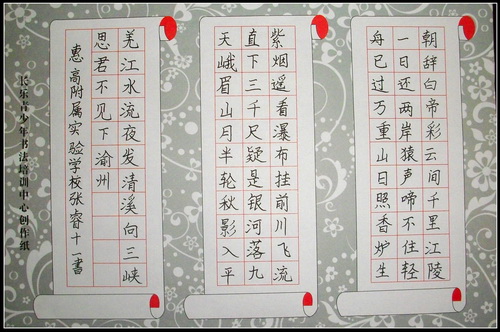 朝辞白帝彩云间千里江陵
一日还两岸猿声啼不住轻
舟已过万重山日照香炉生
紫烟遥看瀑布挂前川飞流
直下三千尺疑是银河落九
天峨眉山月半轮秋影入平
羌江水流夜发清溪向三峡
思君不见下渝州
惠高附属实验学校张睿十一书
长乐青少年书法培训中心创作纸